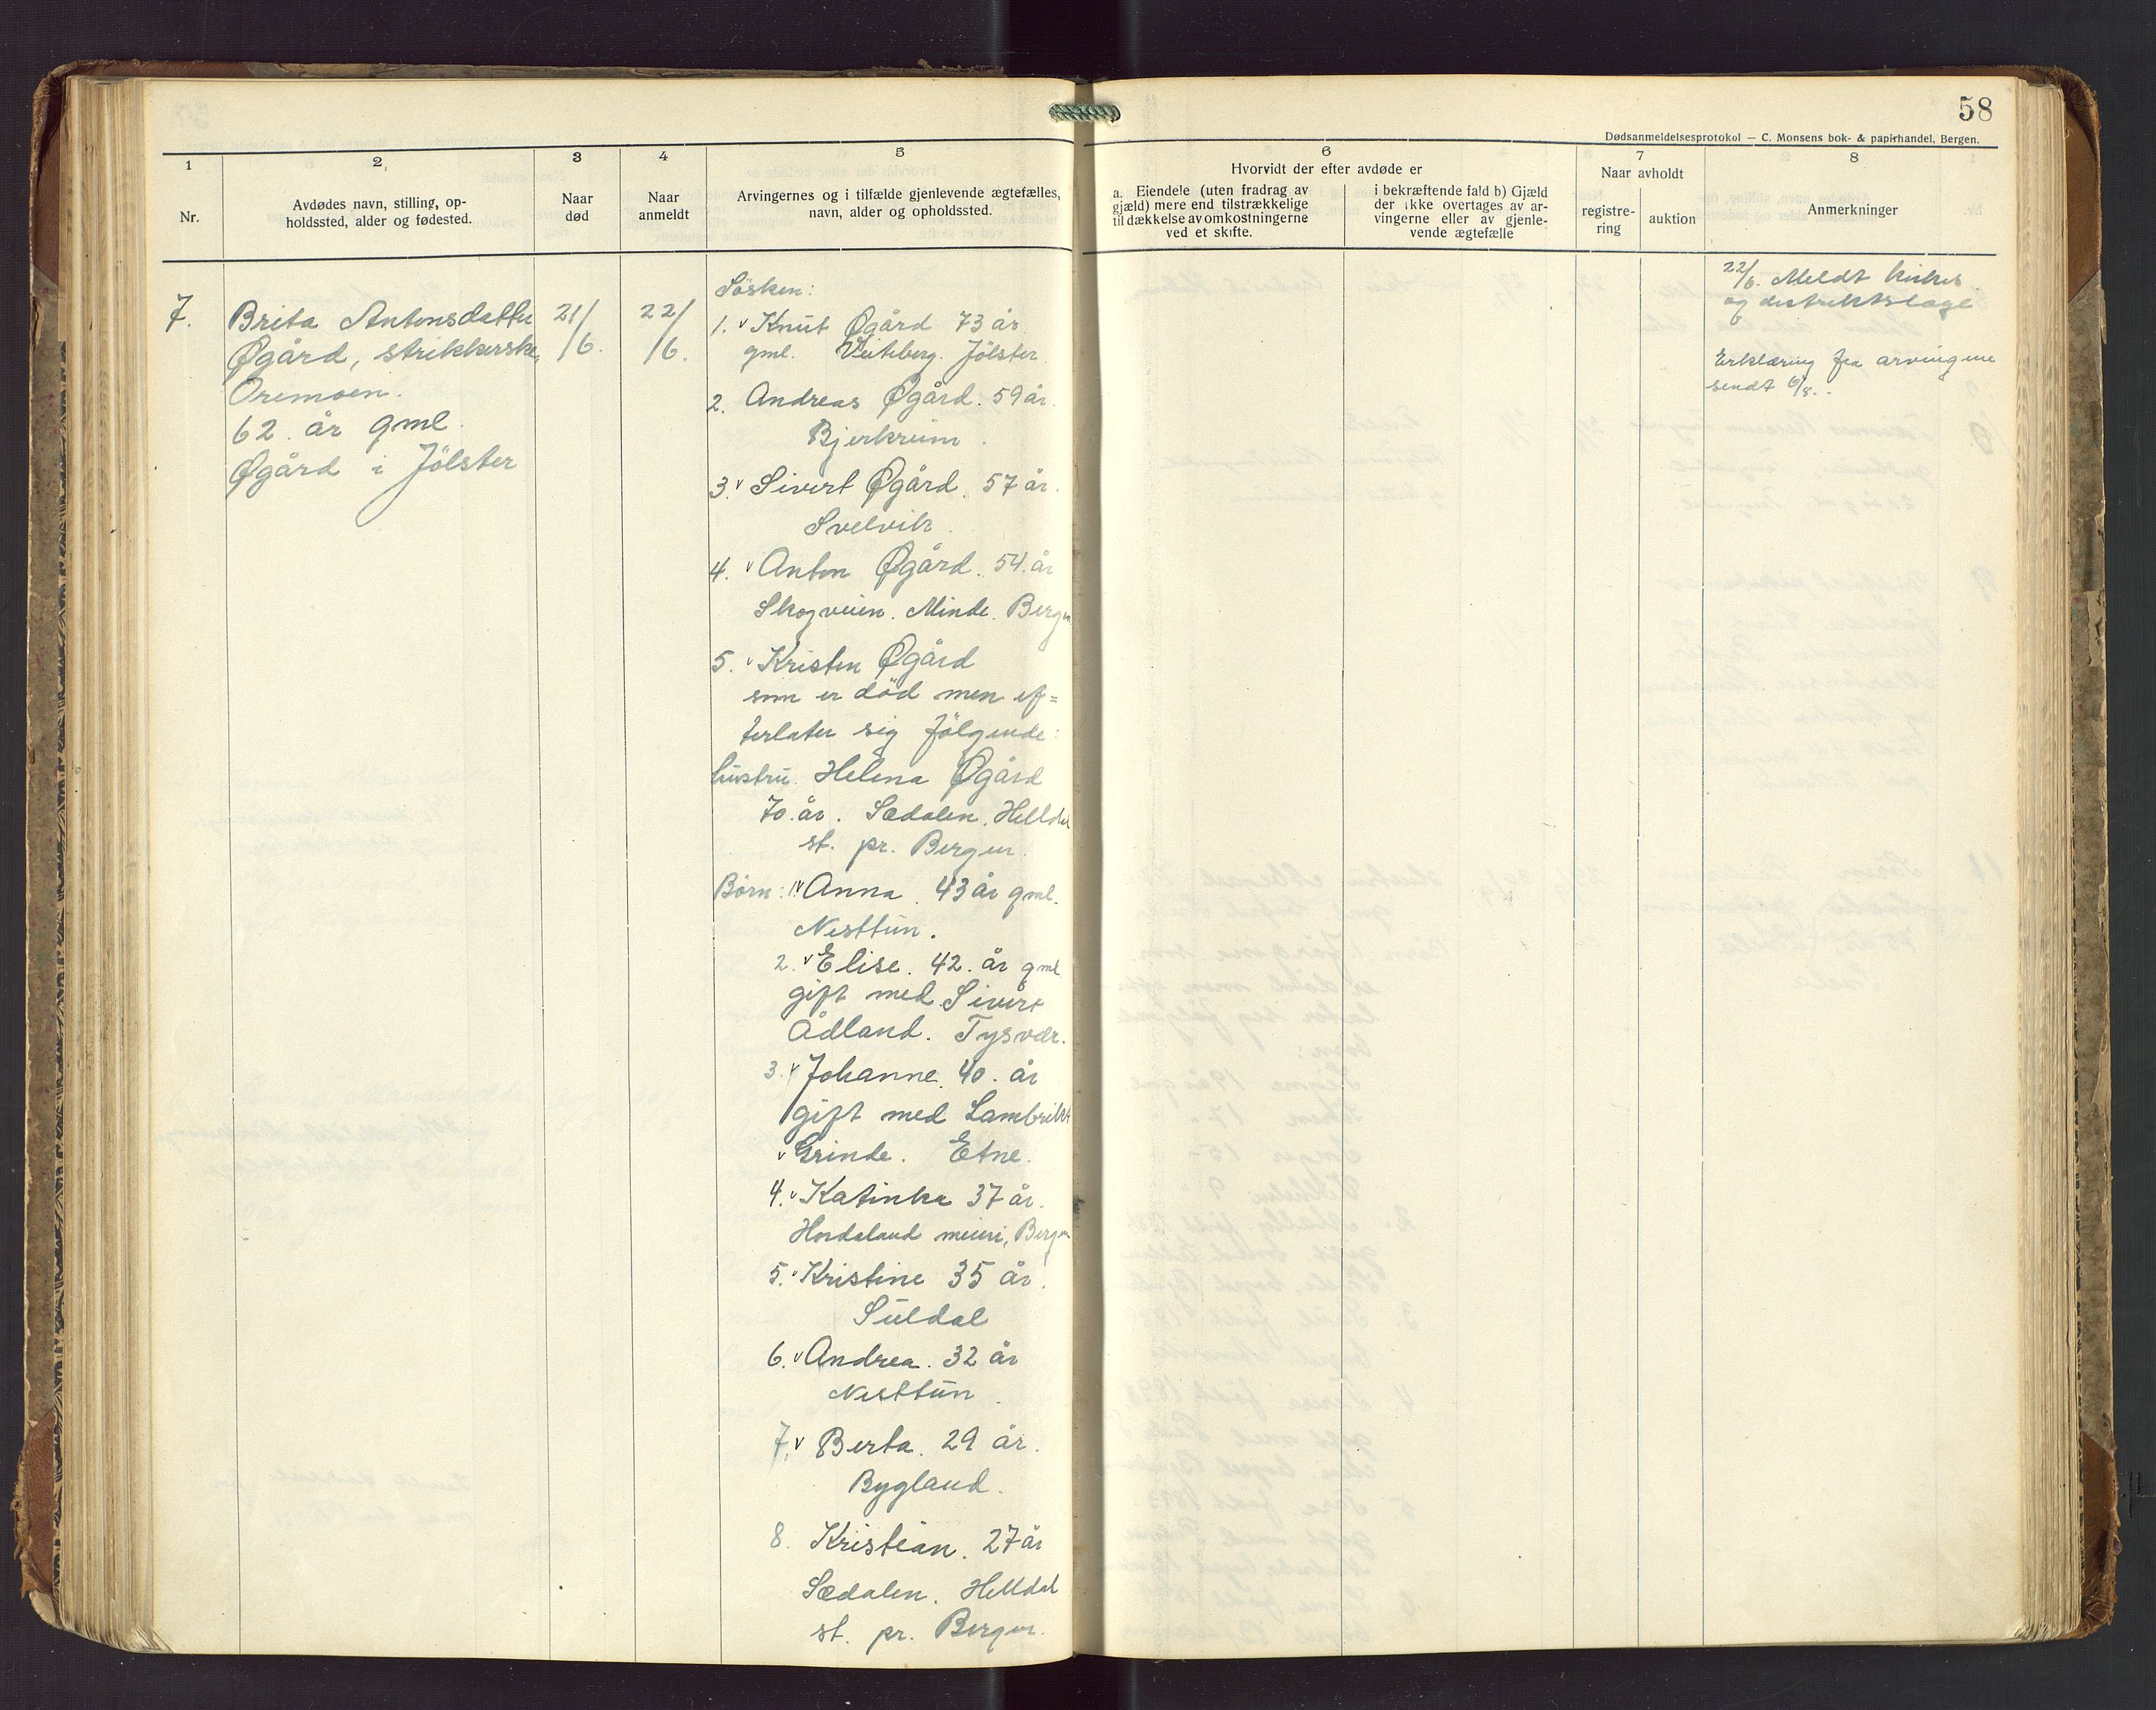 58
Dødsanmeldelsesprotokol — C. Monsens bok- & papirhandel, Bergen.
1
Nr.
2
Avdødes navn, stilling, op-
holdssted, alder og fødested.
3
Naar
død
4
Naar
anmeldt
5
Arvingernes og i tilfælde gjenlevende ægtefælles,
navn, alder og opholdssted.
6
Hvorvidt der efter avdøde er
a. Eiendele (uten fradrag av
gjæld) mere end tilstrækkelige
til dækkelse av omkostningerne
ved et skifte.
i bekræftende fald b) Gjæld
der ikke overtages av ar-
vingerne eller av gjenle-
vende ægtefælle
7
Naar avholdt
registre-
ring
auktion
8
Anmerkninger
7.
Brita Antonsdatter
Øgård, strikkerske,
Oremoen.
62. år gml.
Øgård i Jölster
21/
/6.
22/
/6.
Søsken:
1. v Knut Øgård 73 år
gml. Veiteberg. Jölster
2. Andreas Øgård. 59 år.
Bjerkreim.
3. v Sivert Øgård. 57 år.
Svelvik.
4. v Anton Øgård. 54. år
Skogveien. Minde. Bergen.
5. v Kristen Øgård
som er död men ef=
terlater sig fölgende:
hustru. Helena Øgård
70 år. Sædalen. Helldal
st. pr. Bergen.
Börn: 1 v Anna. 43 år gml.
Nesttun.
2. v Elise. 42. år gml
gift med Sivert
Ådland. Tysvær.
3. v Johanne. 40. år
gift med Lambrikt
v Grinde. Etne.
4. v Katinka 37 år.
Hordaland meieri, Bergen
5. v Kristine 35 år.
Suldal
6. v Andrea. 32 år
Nesttun.
7. v Berta. 29 år.
Bygland.
8. Kristian. 27 år
Sædalen. Helldal
st. pr. Bergen.
22/6. Meldt kirkes.
og distriktslæge
Erklæring fra arvingene
sendt 6/8.